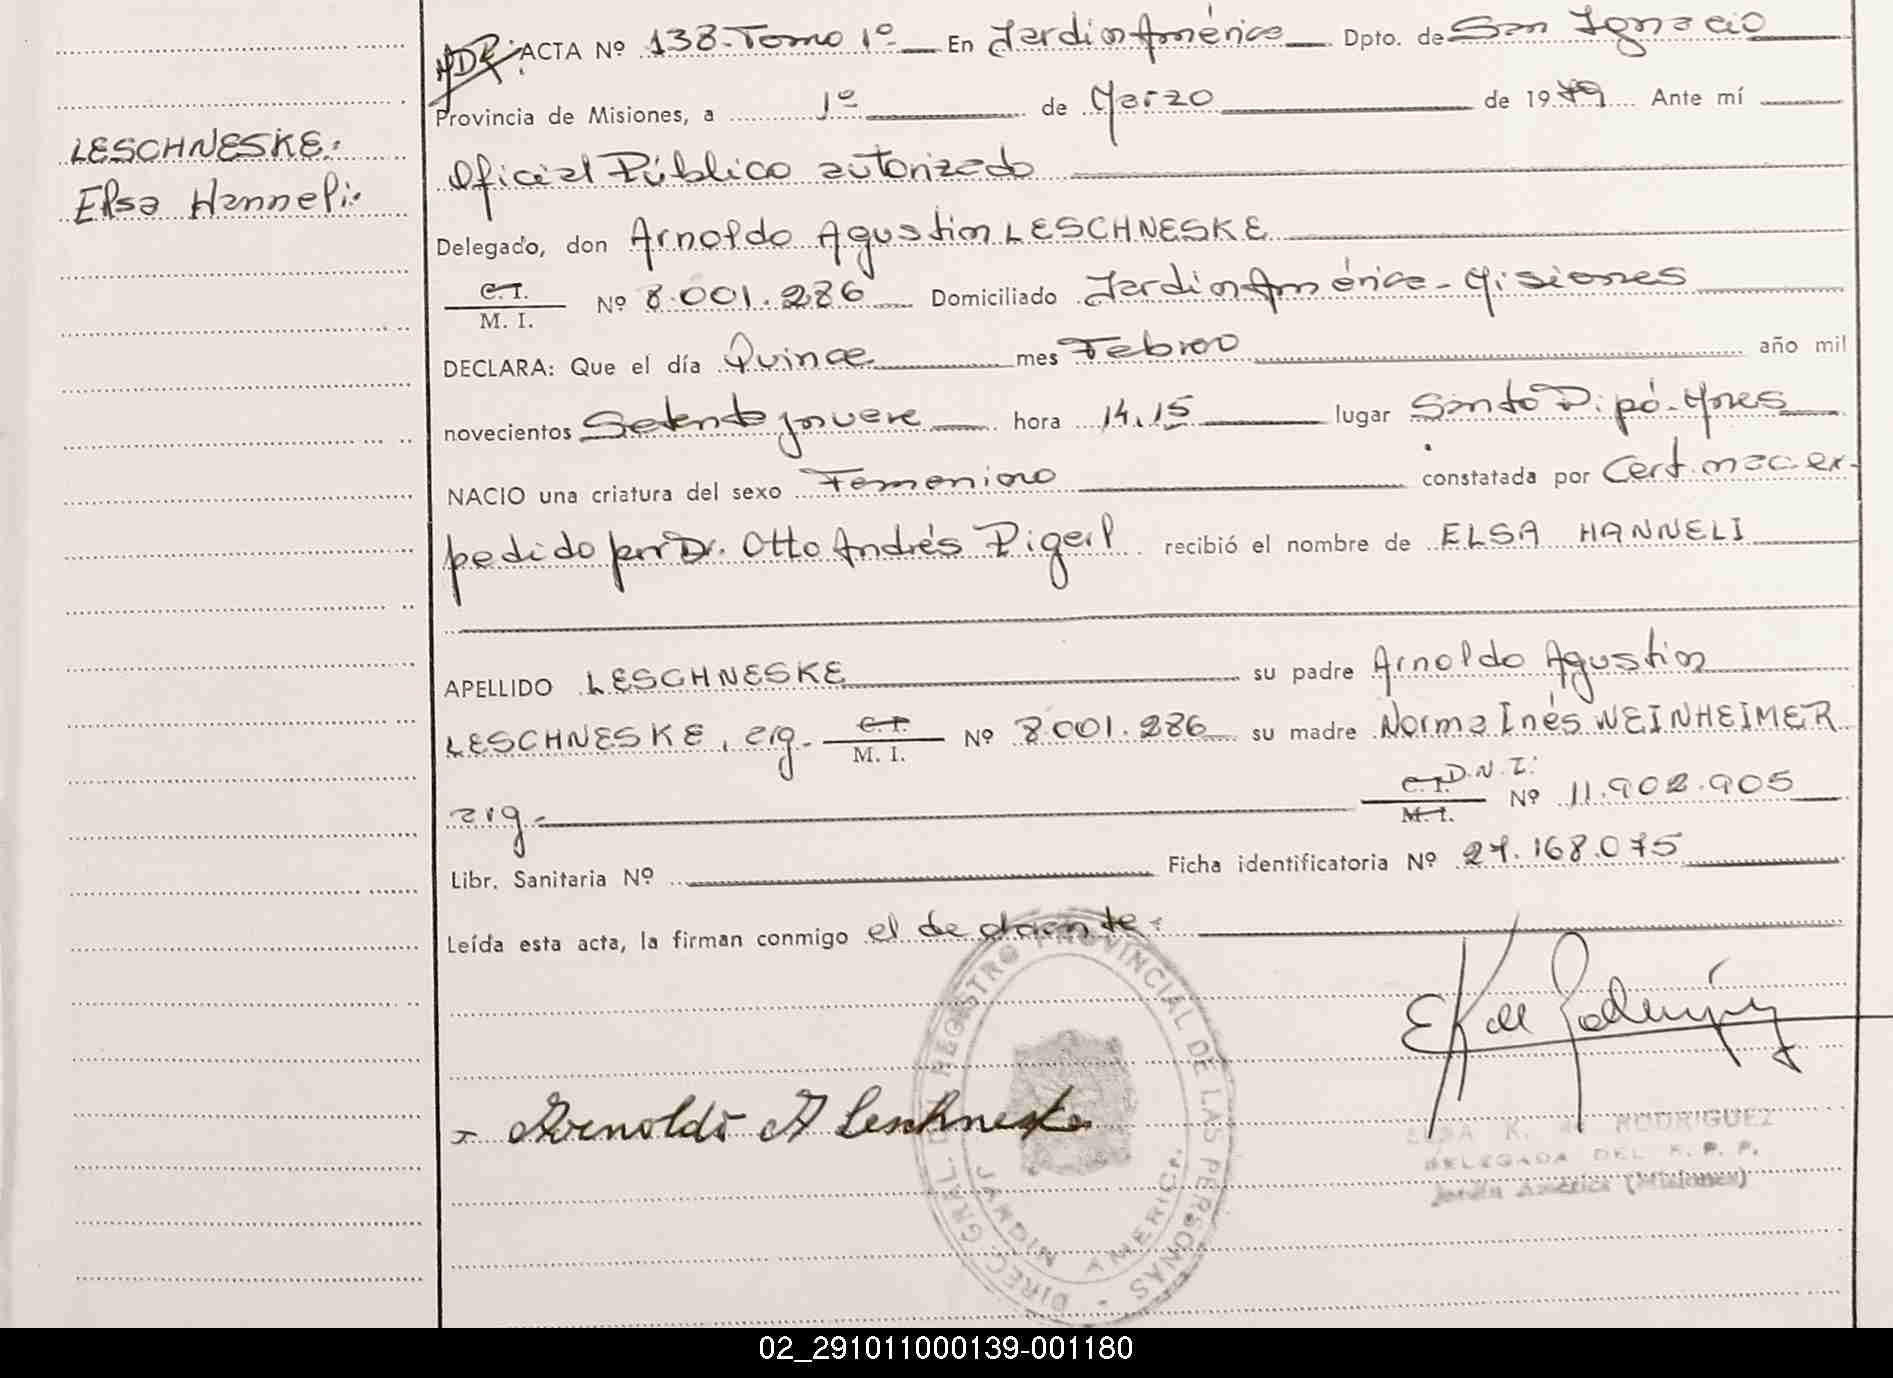 LESCHNESKE:
Elsa Hanneli.
ACTA Nº 138-Tomo 1º En Jardin América Dpto. de San Ignacio
Provincia de Misiones, a 1º de Marzo de 1979 Ante mí
Oficial Público autorizado
Delegado, don Arnoldo Agustin LESCHNESKE
C.I.
M. I. Nº 8.001.286 Domiciliado Jardin América - Misiones
DECLARA: Que el día Quince mes Febrero año mil
novecientos Setenta y nueve hora 14,15 lugar Santo Pipó-Mnes
NACIO una criatura del sexo Femenino constatada por Cert. nac. ex-
pedido por Dr. Otto Andrés recibió el nombre de ELSA HANNELI
APELLIDO LESCHNESKE su padre Arnoldo Agustin
LESCHNESKE, arg. C.I. M. I. Nº 8.001.286 su madre Norma Inés WEINHEIMER
arg. C.I. D.N.I. M.I. Nº 11.902.905
Libr. Sanitaria Nº Ficha identificatoria Nº 27.168.075
Leída esta acta, la firman conmigo el declarante.
DIRECC. GRAL. DE REGISTRO PROVINCIAL DE LAS PERSONAS
JARDIN AMERICA
Arnoldo A Leschneske
E K de Rodriguez
ELSA K. DE RODRIGUEZ
DELEGADA DEL R. P. P.
Jardín América (Misiones)
02_291011000139-001180